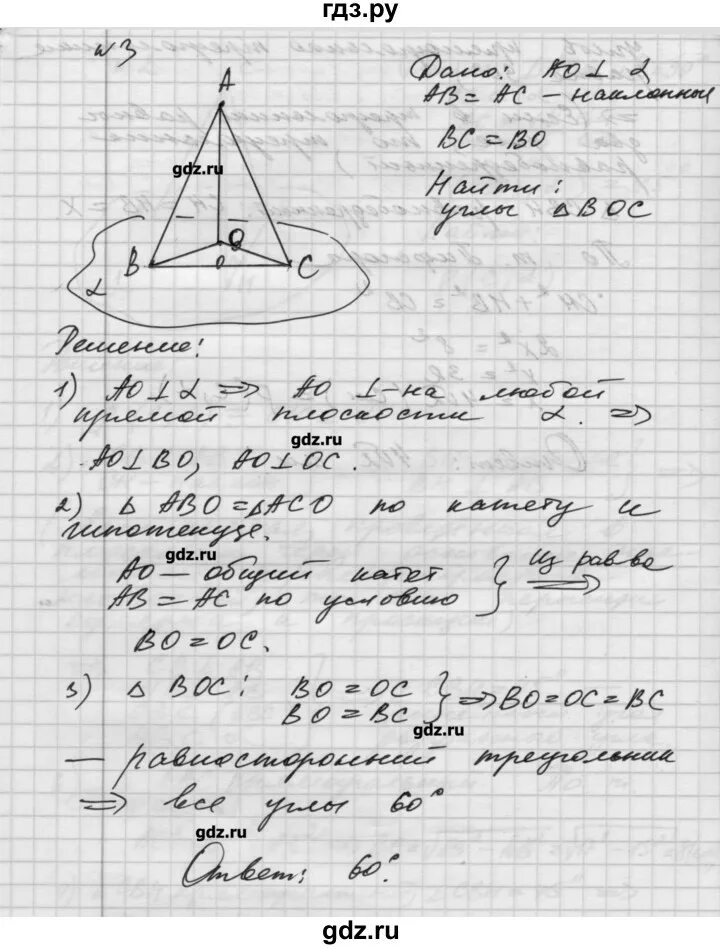 гдз.ру
№3
Дано: AO⊥α
AB=AC – наклонные
BC=BO
Найти:
углы △BOC
A
gdz.ru
B
O
C
α
Решение:
1) AO⊥α ⇒ AO ⊥-на любой
прямой плоскости α. ⇒
gdz.ru
AO⊥BO, AO⊥OC.
2) △ABO=△ACO по катету и
гипотенузе.
gdz.ru
AO – общий катет
AB=AC по условию
} Из рав-ва ⇒
BO=OC.
3) △BOC: BO=OC
BO=BC
} ⇒ BO=OC=BC
gdz.ru
— равносторонний треугольник
⇒ все углы 60°
gdz.ru
Ответ: 60°.
gdz.ru